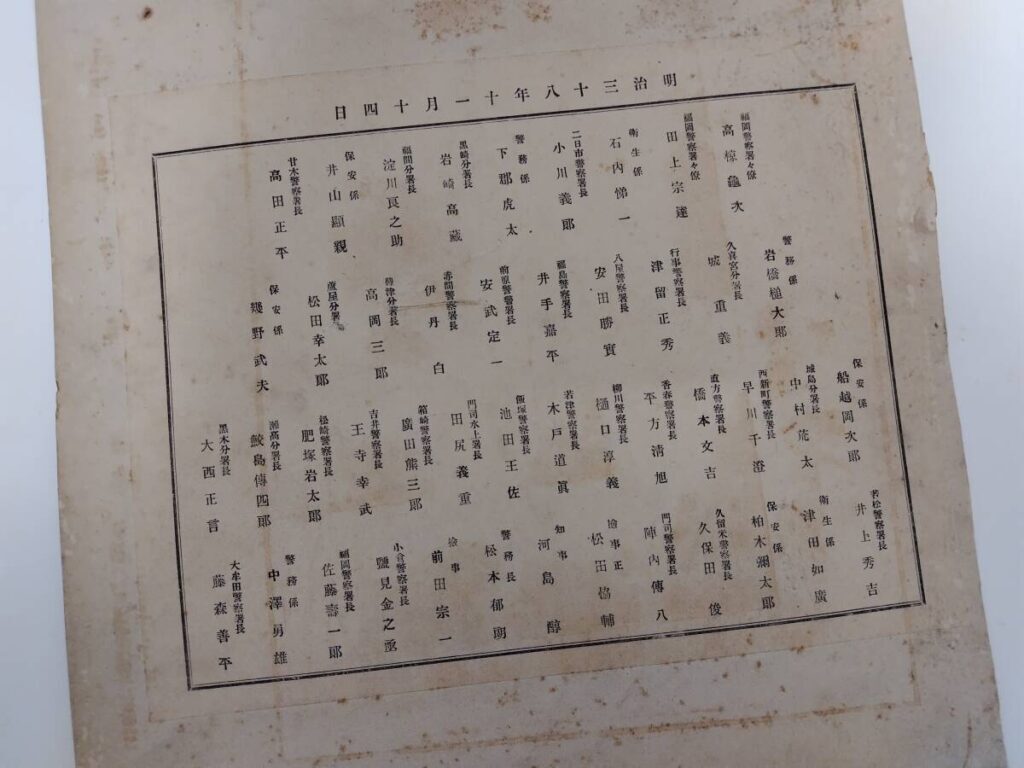 明治三十八年十一月十四日
福岡警察署々僚
高椋龜次
福岡警察署々僚
田上宗達
衛生係
石內悌一
二日市警察署長
小川義郎
警務係
下郡虎太
黑崎分署長
岩崎高藏
福間分署長
淀川良之助
保安係
井山顯親
甘木警察署長
高田正平
警務係
岩橋槌太郎
久喜宮分署長
城重義
行事警察署長
津留正秀
八屋警察署長
安田勝實
福島警察署長
井手嘉平
前原警察署長
安武定一
赤間警察署長
伊丹白
分署長
高岡三郎
蘆屋分署
松田幸太郎
保安係
幾野武夫
保安係
船越岡次郎
城島分署長
中村荒太
西新町警察署長
早川千澄
直方警察署長
橋本文吉
香春警察署長
平方淸旭
柳川警察署長
樋口淳義
若津警察署長
木戶道眞
飯塚警察署長
池田王佐
門司水上署長
田尻義重
箱崎警察署長
廣田熊三郎
吉井警察署長
王寺幸武
松崎警察署長
肥塚岩太郎
瀨高分署長
鮫島傳四郎
黑木分署長
大西正言
若松警察署長
井上秀吉
衛生係
津田如廣
保安係
柏木彌太郎
久留米警察署長
久保田俊
門司警察署長
陣內傳八
檢事正
松田協輔
知事
河島醇
警務長
松本郁朗
檢事
前田宗一
小倉警察署長
鹽見金之丞
福岡警察署長
佐藤壽一郎
警務係
中澤勇雄
大牟田警察署長
藤森善平